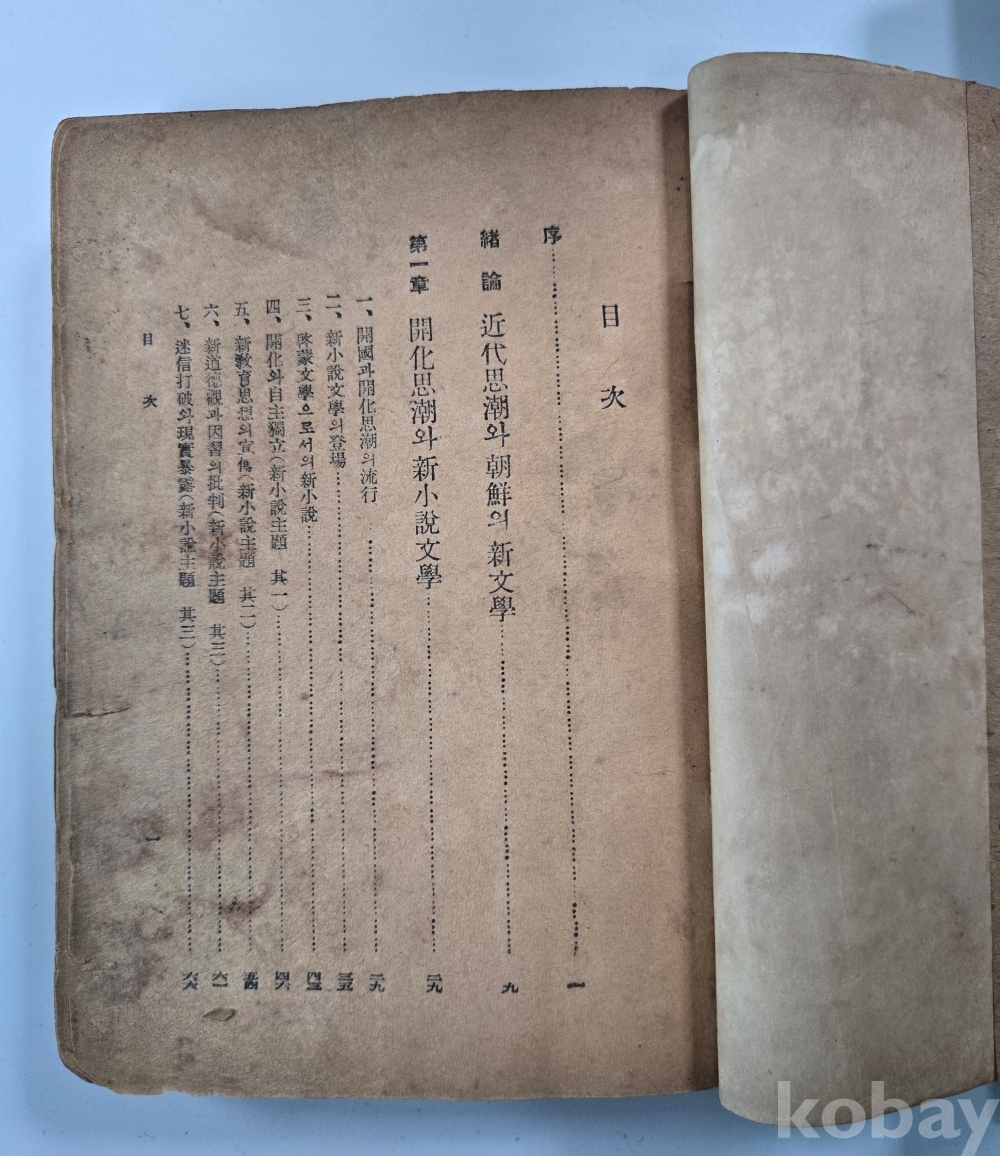 目次
序 一
緒論 近代思潮와 朝鮮의 新文學 九
第一章 開化思潮와 新小說文學 二九
一、開國과 開化思潮의 流行 二九
二、新小說文學의 登場 三五
三、啓蒙文學으로서의 新小說 四三
四、開化와 自主獨立(新小說主題 其一) 四六
五、新敎育思想의 宣傳(新小說主題 其二) 五四
六、新道德觀과 因習의 批判(新小說主題 其三) 六一
七、迷信打破와 現實暴露(新小說主題 其三) 六六
目次 一
kobay